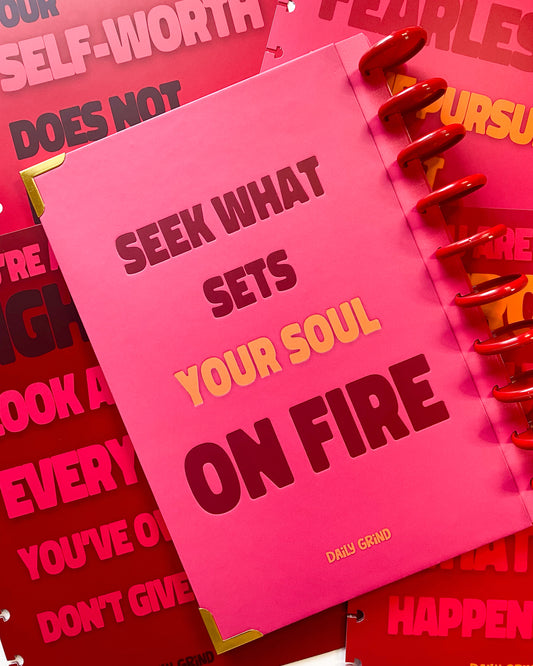 OUR
SELF-WORTH
DOES NOT
FEARLESS
PURSU
SEEK WHAT
SETS
YOUR SOUL
ON FIRE
DAILY GRIND
'RE
LOOK A
EVERY
YOU'VE O
DON'T GIVE
ARE
HAPPEN
DAILY GRIND